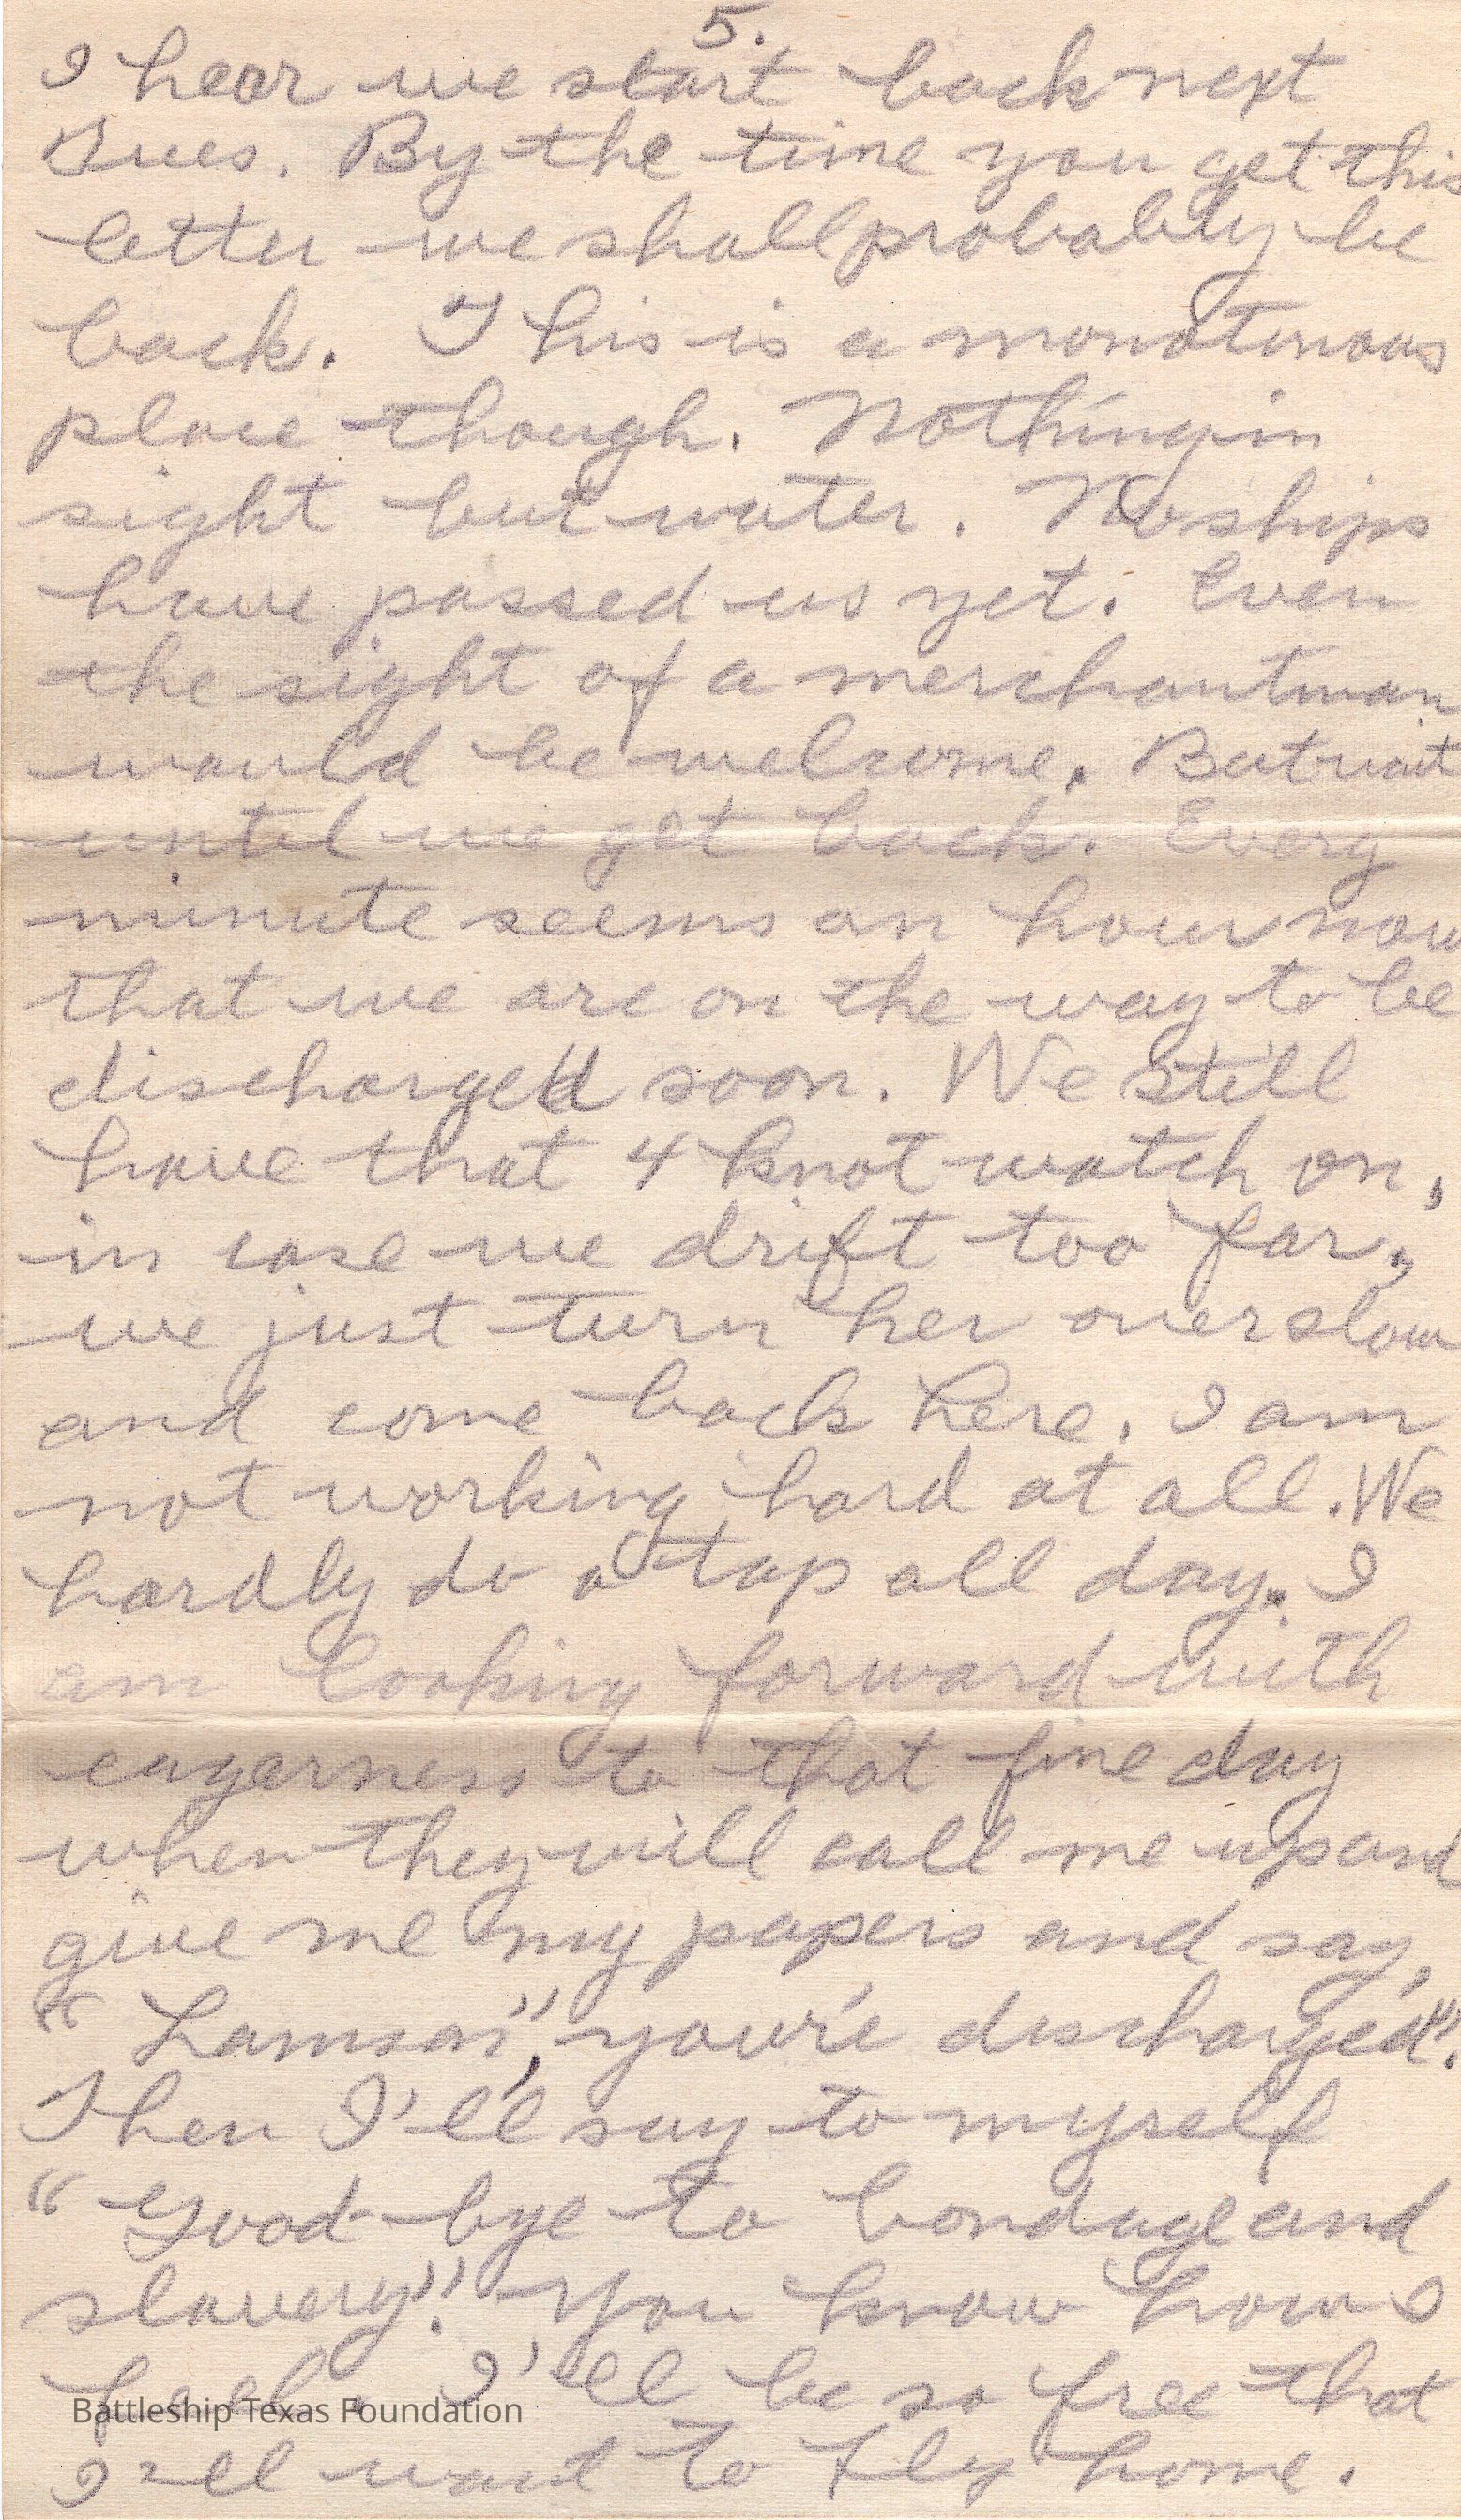 5.
I hear we start back next
Tues. By the time you get this
letter we shall probably be
back. This is a monotinous
place though. Nothing in
sight but water. No ships
have passed us yet. Even
the sight of a merchantman
would be welcome. But wait
until we get back. Every
minute seems an hour now
that we are on the way to be
discharged soon. We still
have that 4 knot watch on,
in case we drift too far,
we just turn her over slow
and come back here. I am
not working hard at all. We
hardly do a tap all day. I
am looking forward with
eagarness to that fine day
when they will call me up and
give me my papers and say,
"Lamson", you're discharged".
Then I'll say to myself
"Good-bye to bondage and
slavery". You know how I
feel. I'll be so free that
I'll want to fly home.
Battleship Texas Foundation